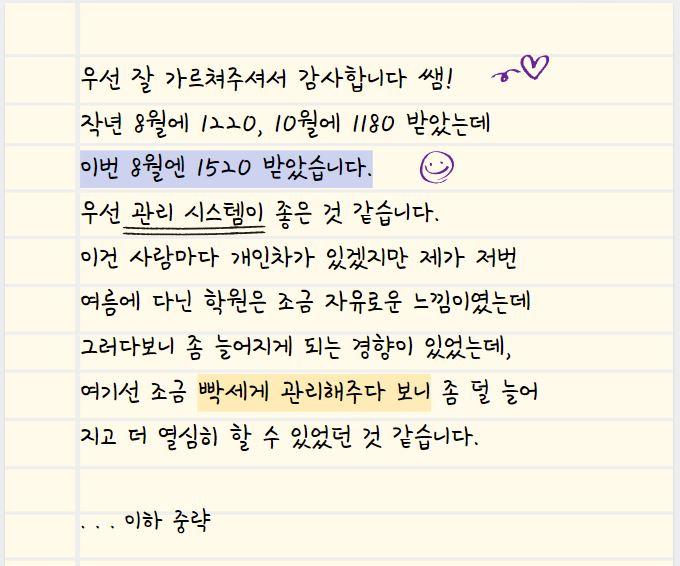 우선 잘 가르쳐주셔서 감사합니다 쌤!
작년 8월에 1220, 10월에 1180 받았는데
이번 8월엔 1520 받았습니다.
우선 관리 시스템이 좋은 것 같습니다.
이건 사람마다 개인차가 있겠지만 제가 저번
여름에 다닌 학원은 조금 자유로운 느낌이였는데
그러다보니 좀 늘어지게 되는 경향이 있었는데,
여기선 조금 빡세게 관리해주다 보니 좀 덜 늘어
지고 더 열심히 할 수 있었던 것 같습니다.
. . . 이하 중략